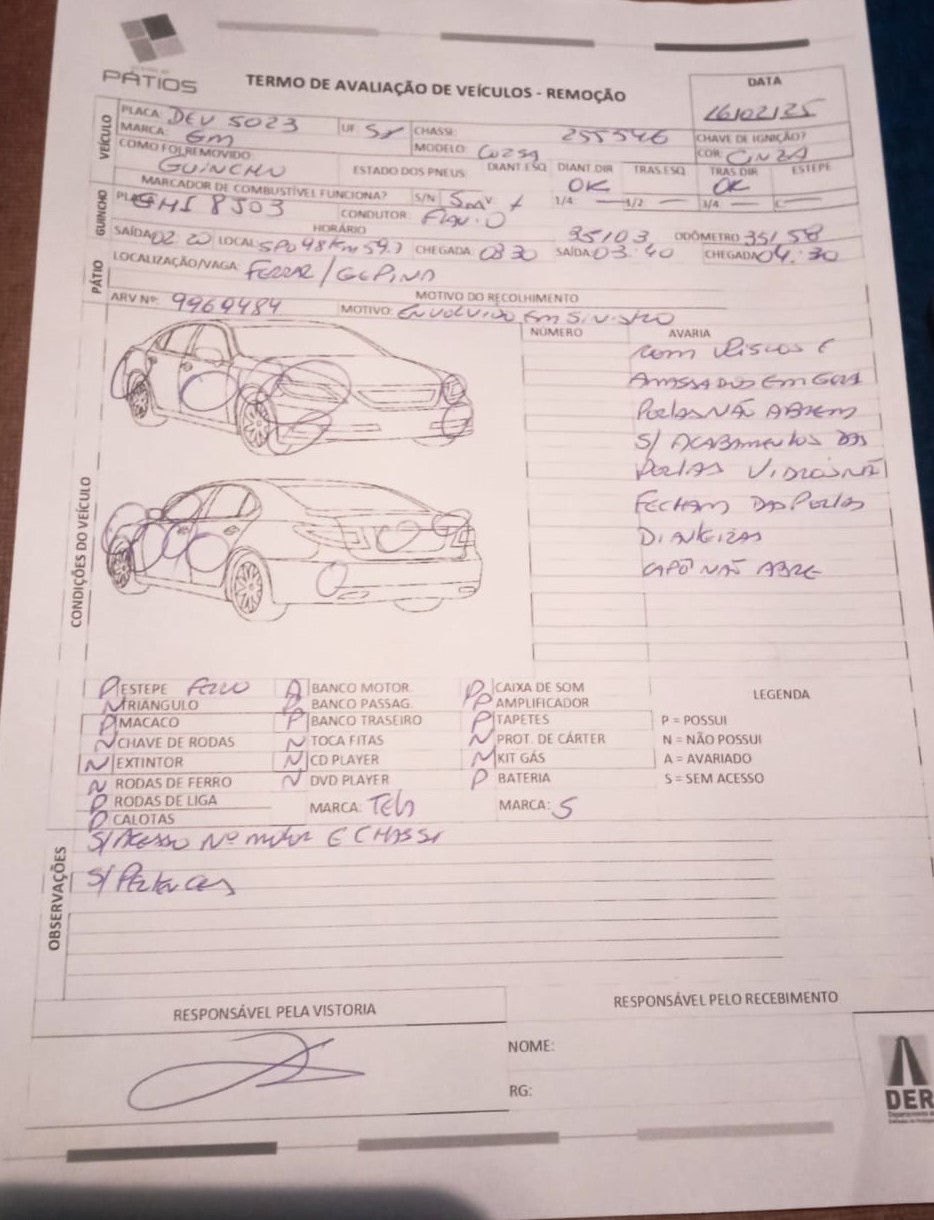 PÁTIOS
TERMO DE AVALIAÇÃO DE VEÍCULOS - REMOÇÃO
DATA
16/02/25
VEÍCULO
PLACA: DEV 5023 UF: SP CHASSI: 255546 CHAVE DE IGNIÇÃO?
MARCA: GM MODELO: CORSA COR: CINZA
COMO FOI REMOVIDO: GUINCHO ESTADO DOS PNEUS: DIANT.ESQ DIANT.DIR OK TRAS.ESQ TRAS.DIR OK ESTEPE
MARCADOR DE COMBUSTÍVEL FUNCIONA? S/N 1/4: — 1/2: — 3/4: —
GUINCHO
PLACA 8J03 CONDUTOR: FLAVIO
HORÁRIO 35103 ODÔMETRO 35158
SAÍDA 02:20 LOCAL SP048 Km 59.7 CHEGADA 03 30 SAÍDA 03:40 CHEGADA 04:30
PÁTIO
LOCALIZAÇÃO/VAGA: FERRAZ/
MOTIVO DO RECOLHIMENTO
ARV Nº: 9969484 MOTIVO: ENVOLVIDO EM SINISTRO
CONDIÇÕES DO VEÍCULO
NÚMERO AVARIA
COM RISCOS E
AMASSADOS EM GERAL
PORTAS NÃO ABREM
S/ ACABAMENTOS DAS
PORTAS VIDROS NÃO
FECHAM DAS PORTAS
DIANTEIRAS
CAPÔ NÃO ABRE
P ESTEPE FERRO A BANCO MOTOR. P CAIXA DE SOM
N TRIÂNGULO P BANCO PASSAG. P AMPLIFICADOR
P MACACO P BANCO TRASEIRO P TAPETES
N CHAVE DE RODAS N TOCA FITAS N PROT. DE CÁRTER
N EXTINTOR N CD PLAYER N KIT GÁS
N RODAS DE FERRO N DVD PLAYER P BATERIA
P RODAS DE LIGA MARCA: MARCA: S
P CALOTAS
LEGENDA
P = POSSUI
N = NÃO POSSUI
A = AVARIADO
S = SEM ACESSO
OBSERVAÇÕES
S/ ACESSO Nº MOTOR E CHASSI
S/ PERTENCES
RESPONSÁVEL PELA VISTORIA
RESPONSÁVEL PELO RECEBIMENTO
NOME:
RG:
DER